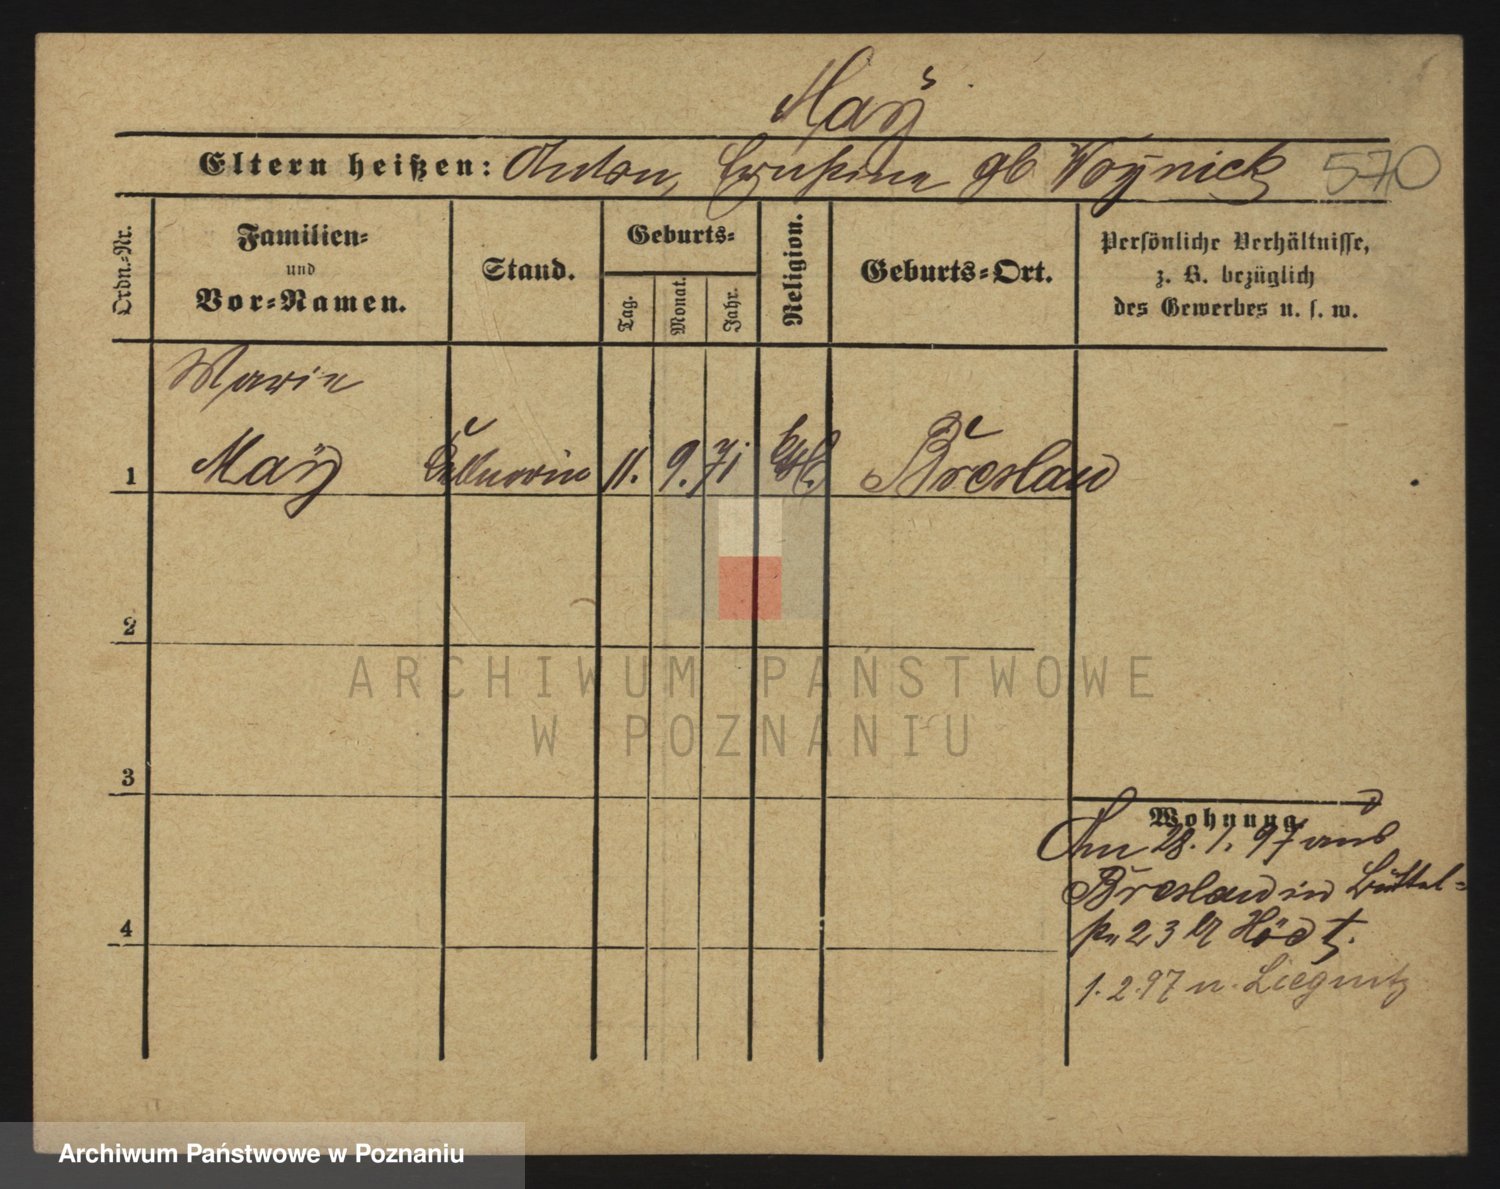 May
Eltern heißen: Anton, Ernstine gb Woynick
570
Ordn.-Nr.
Familien-
und
Vor-Namen.
Stand.
Geburts-
Tag.
Monat.
Jahr.
Religion.
Geburts-Ort.
Persönliche Verhältnisse,
z. B. bezüglich
des Gewerbes u. s. w.
Marie
1 May Kellnerin 11. 9. 71 Kth. Breslau
2
3
4
Wohnung
Am 28. 1. 97 aus
Breslau in Büttel-
1. 2. 97 n. Liegnitz
ARCHIWUM PAŃSTWOWE
W POZNANIU
Archiwum Państwowe w Poznaniu